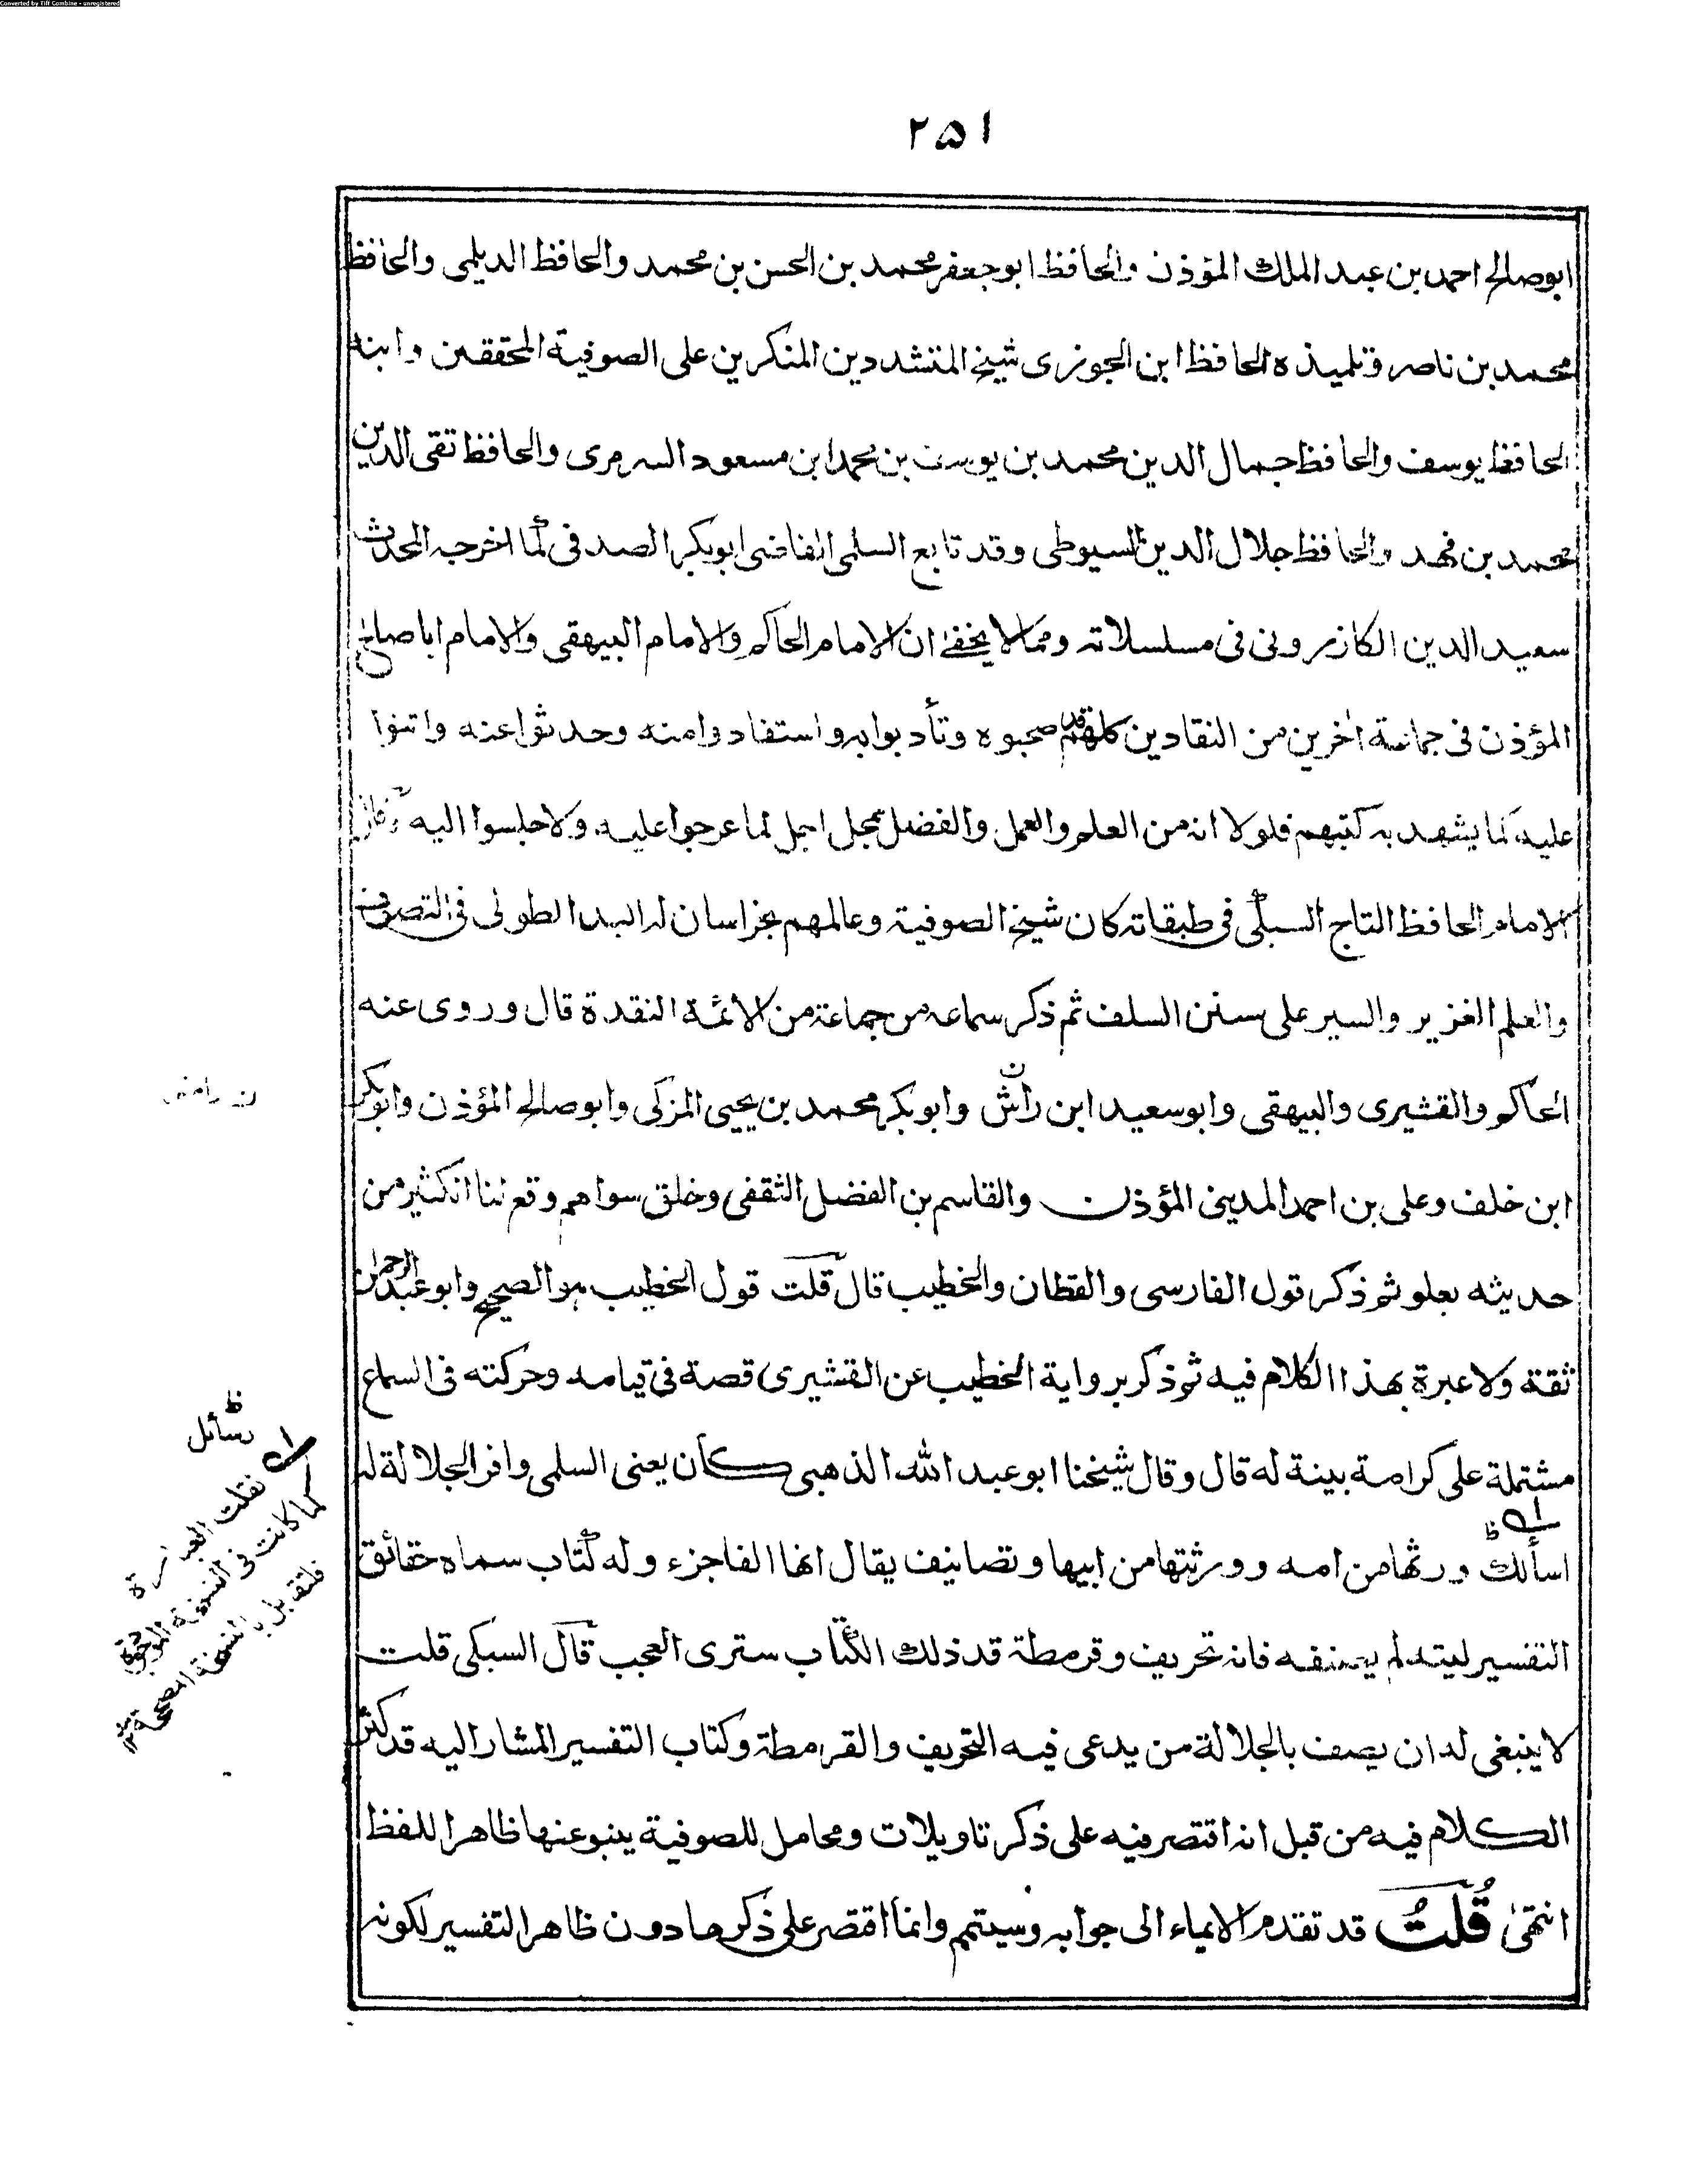 Converted by Tiff Combine - unregistered
۲۵۱
ابو صالح احمد بن عبد الملك المؤذن والحافظ ابو جعفر محمد بن الحسن بن محمد والحافظ الديلمى والحافظ
محمد بن ناصر وتلميذه الحافظ ابن الجوزى شيخ المتشددين المنكرين على الصوفية المحققين وابنه
الحافظ يوسف والحافظ جمال الدين محمد بن يوسف بن محمد ابن مسعود السرمرى والحافظ تقى الدين
محمد بن فهد والحافظ جلال الدين السيوطى وقد تابع السلمى القاضى ابو بكر الصدفى كما اخرجه المحدث
سعيد الدين الكازرونى فى مسلسلاته ومما لا يخفى ان الامام الحاكم والامام البيهقى والامام ابا صالح
المؤذن فى جماعة اٰخرين من النقادين كلهم قد صحبوه وتأدبوا به واستفادوا منه وحدثوا عنه واثنوا
عليه كما يشهد به كتبهم فلولا انه من العلم والعمل والفضل بمحل اجل لما عرجوا عليه ولا جلسوا اليه وقال
الامام الحافظ التاج السبكى فى طبقاته كان شيخ الصوفية وعالمهم بخراسان له اليد الطولى فى التصوف
والعلم الغزير والسير على سنن السلف ثم ذكر سماعه من جماعة من الائمة النقدة قال وروى عنه
الحاكم والقشيرى والبيهقى وابو سعيد ابن راش وابو بكر محمد بن يحيى المزكى وابو صالح المؤذن وابو بكر
ابن خلف وعلى بن احمد المدينى المؤذن والقاسم بن الفضل الثقفى وخلق سواهم وقع لنا الكثير من
حديثه بعلو ثم ذكر قول الفارسى والقطان والخطيب قال قلت قول الخطيب هو الصحيح وابو عبد الرحمان
ثقة ولا عبرة بهذا الكلام فيه ثم ذكر برواية الخطيب عن القشيرى قصة فى قيامه وحركته فى السماع
مشتملة على كرامة بينة له قال وقال شيخنا ابو عبد الله الذهبى كان يعنى السلمى وافر الجلالة له
اسألك ورثها من امه وورثتها من ابيها وتصانيف يقال انها الفا جزء وله كتاب سماه حقائق
التفسير ليته لم يصنفه فانه تحريف وقرمطة قد ذلك الكتاب سترى العجب قال السبكى قلت
لا ينبغى له ان يصف بالجلالة من يدعى فيه التحريف والقرمطة وكتاب التفسير المشار اليه قد كثر
الكلام فيه من قبل انه اقتصر فيه على ذكر تاويلات ومحامل للصوفية ينبو عنها ظاهر اللفظ
انتهىٰ قُلتُ قد تقدم الايماء الى جوابه وسيتم وانما اقتصر على ذكرها دون ظاهر التفسير لكونه
ن رامش
ظ
رسائل
نقلت العبارة
كما كانت فى النسخة الموجودة
فلتقابل بالنسخة الصحيحة